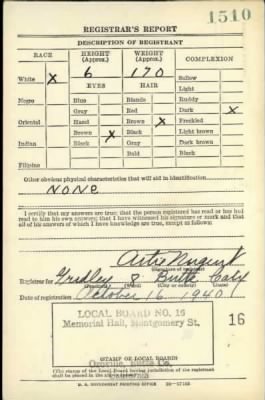 1510
REGISTRAR'S REPORT
DESCRIPTION OF REGISTRANT
RACE HEIGHT (Approx.) WEIGHT (Approx.) COMPLEXION
White X 6 170 Sallow
EYES HAIR Light
Negro Blue Blonde Ruddy
Gray Red Dark X
Oriental Hazel Brown X Freckled
Brown X Black Light brown
Indian Black Gray Dark brown
Bald Black
Filipino
Other obvious physical characteristics that will aid in identification
NONE
I certify that my answers are true; that the person registered has read or has had
read to him his own answers; that I have witnessed his signature or mark and that
all of his answers of which I have knowledge are true, except as follows:
(Signature of registrar)
Registrar for Gridley 8 Butte Calif
(Precinct) (Ward) (City or county) (State)
Date of registration October 16 1940
LOCAL BOARD NO. 16
Memorial Hall, Montgomery St, 16
Oroville, Butte Co.
California
STAMP OF LOCAL BOARD
(The stamp of the Local Board having jurisdiction of the registrant
shall be placed in the above space.)
U. S. GOVERNMENT PRINTING OFFICE